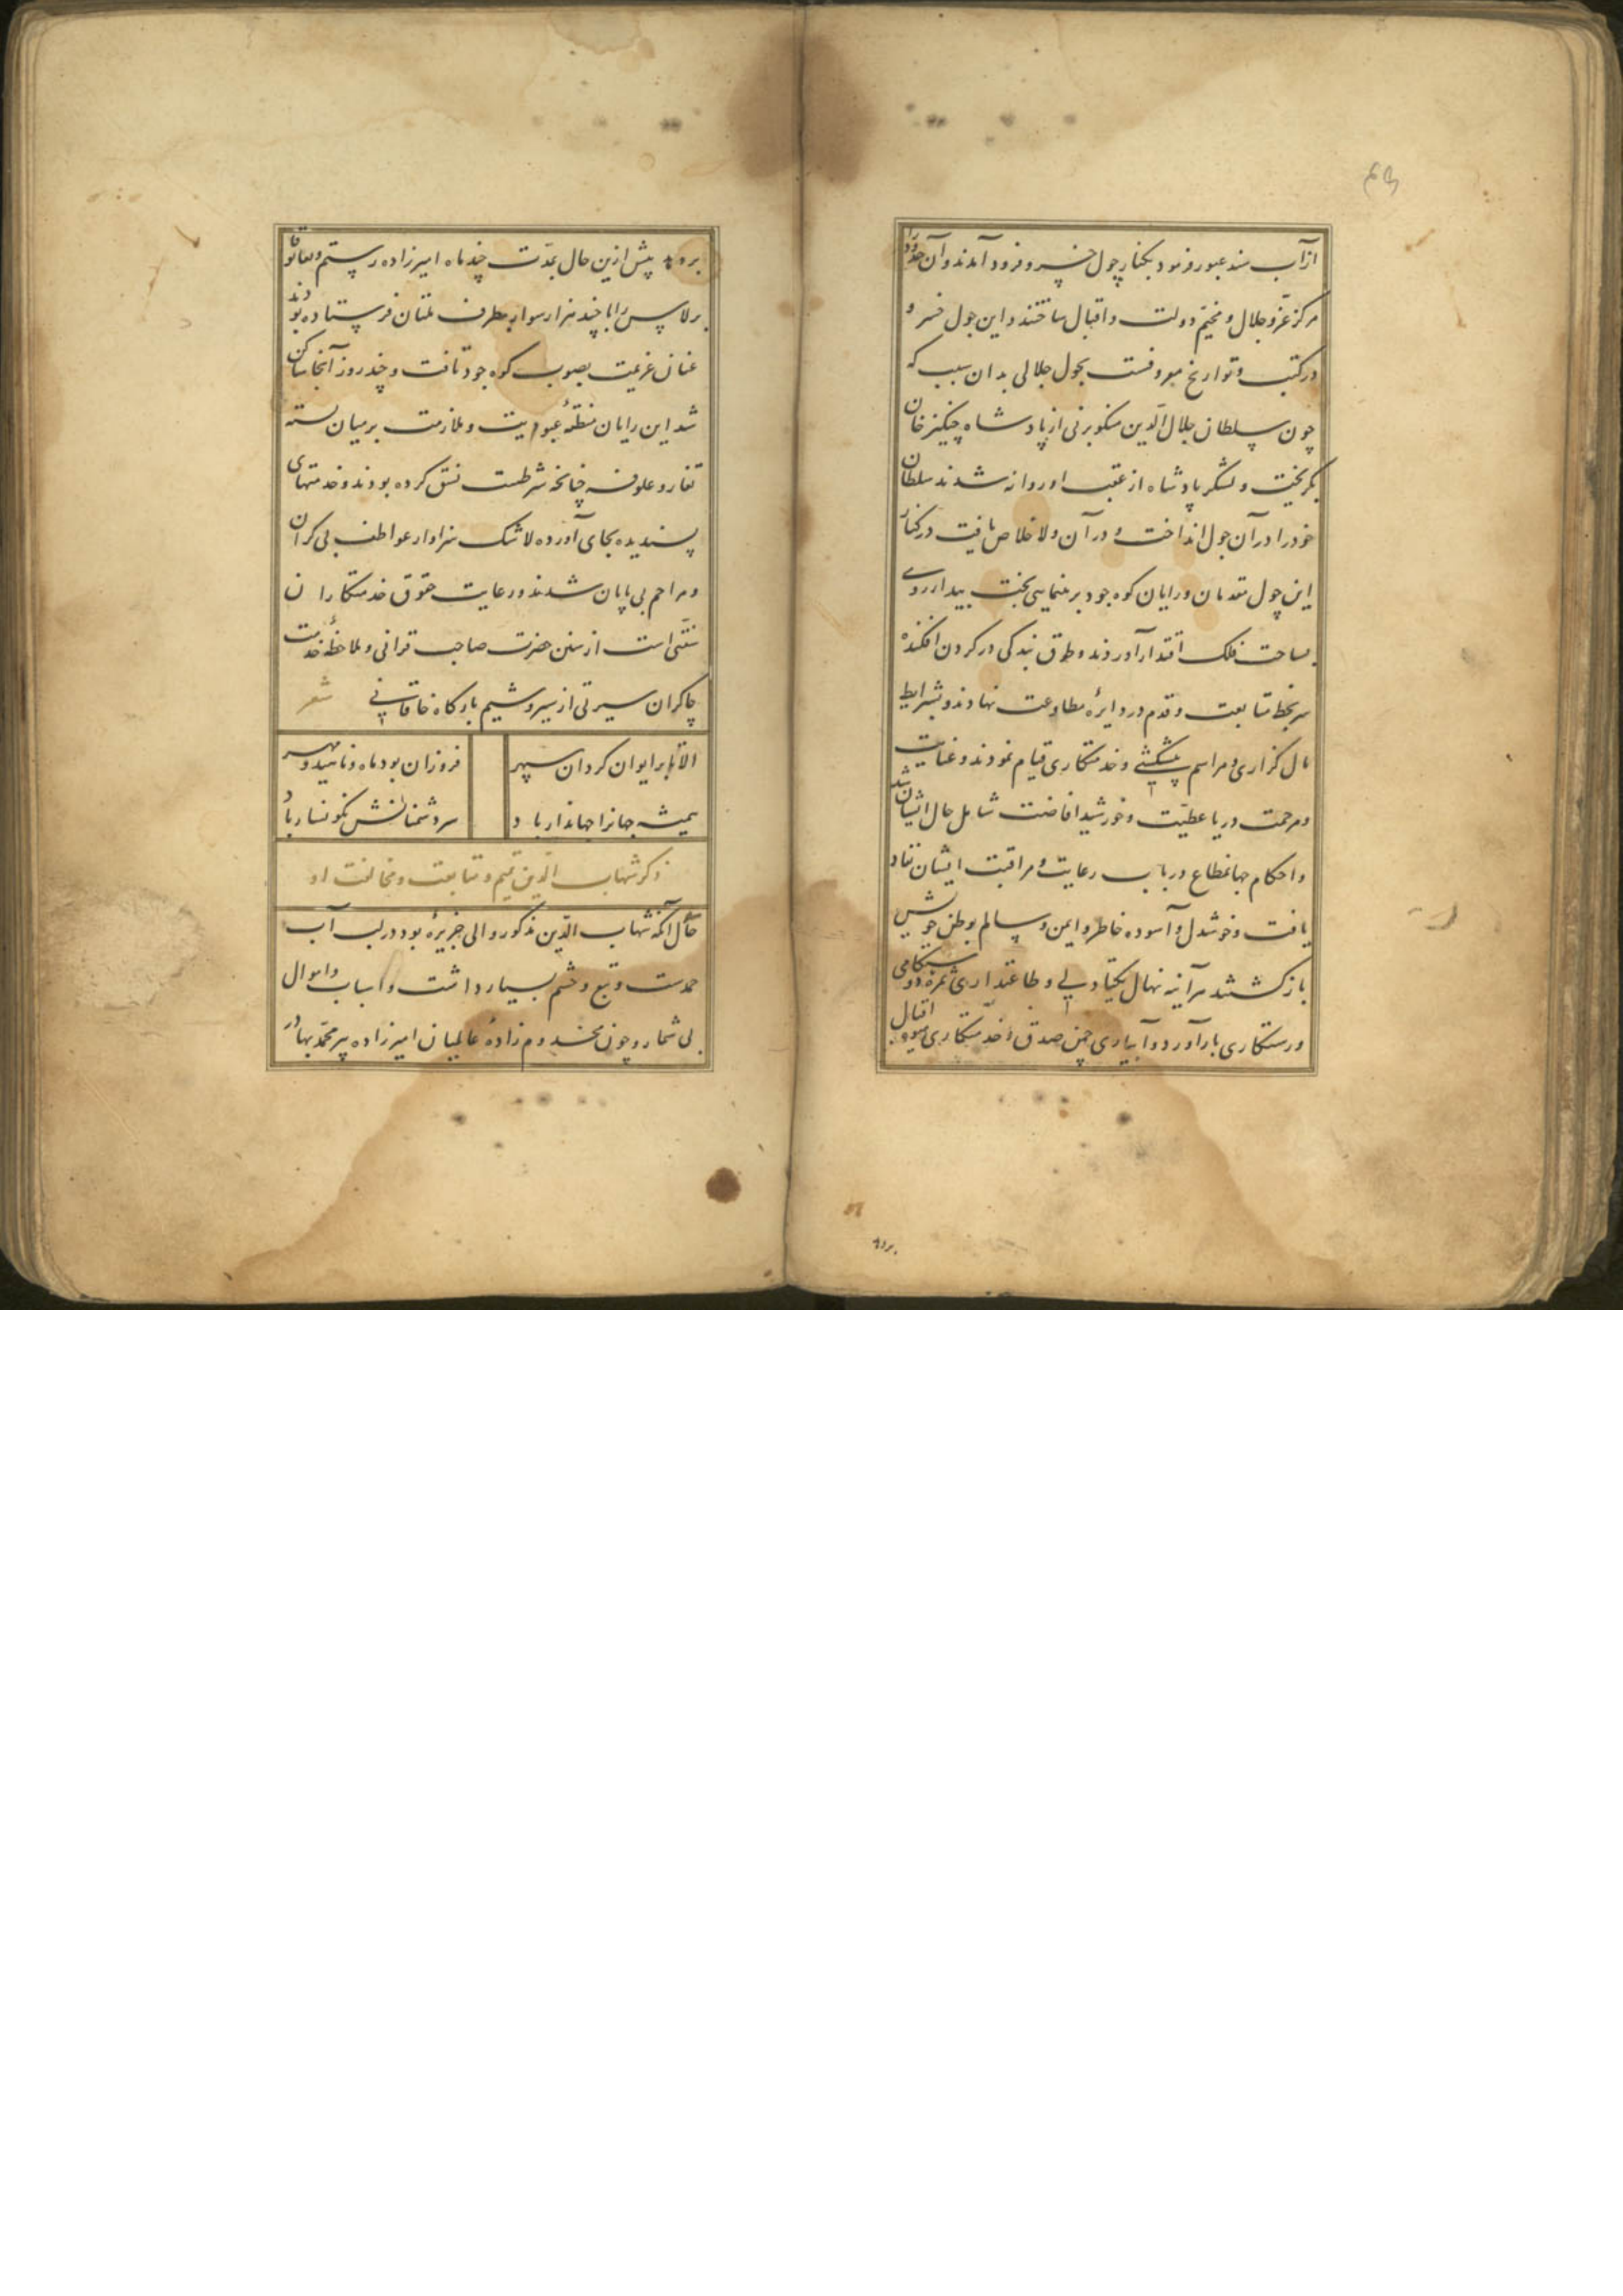 از آب سند عبور فرمود بکنار چول خسرو فرود آمدند و آن حدود را
مرکز عزّ و جلال و مخیّم دولت و اقبال ساختند و این چول خسرو
در کتب و تواریخ معروفست بچول جلالی بدان سبب که
چون سلطان جلال الدّین منکوبرنی از پادشاه چنکیز خان
بکریخت و لشکر پادشاه از عقب او روانه شدند سلطان
خود را در آن چول انداخت و در آن ولا خلاص یافت در کنار
این چول مقدمان و رایان کوه جود برهنمایی بخت بیدار روی
بساحت فلک اقتدار آوردند و طوق بندکی در کردن افکنده
سر بخط متابعت و قدم در دایرهٔ مطاوعت نهادند و بشرایط
مال کزاری و مراسم پیشکشی و خدمتکاری قیام نمودند و عنایت
و مرحمت دریا عطیّت و خورشید افاضت شامل حال ایشان شد
و احکام جهانمطاع در باب رعایت و مراقبت ایشان نفاذ
یافت و خوشدل و آسوده خاطر و ایمن و سالم بوطن خویش
باز کشتند هرآینه نهال یکتادلی و طاعتداری ثمرهٔ دوستکامی
و رستکاری بار آورد و آبیاری چمن صدق و خدمتکاری میوهٔ اقبال
بردهد
بردهد پیش ازین حال بمدّت چند ماه امیرزاده رستم و
برلاس را با چند هزار سوار بطرف ملتان فرستاده بودند
عنان عزیمت بصوب کوه جود تافت و چند روز آنجا ساکن
شد این رایان منطقهٔ عبودیت و ملازمت بر میان بسته
تغار و علوفه چنانچه شرطست نسق کرده بودند و خدمتهای
پسندیده بجای آورده لا شک سزاوار عواطف بی کران
و مراحم بی پایان شدند و رعایت حقوق خدمتکاران
سنّتی است از سنن حضرت صاحب قرانی و ملاحظهٔ خدمت
چاکران سیرتی از سیر و شیم بارکاه خاقانی شعر
الا تا بر ایوان کردان سپهر فروزان بود ماه و ناهید و مهر
همیشه جهانرا جهاندار باد سر دشمنانش نکونسار باد
ذکر شهاب الدّین تمیم و متابعت و مخالفت او
حال آنکه شهاب الدّین مذکور والی جزیرهٔ بود در لب آب
جمدست و تبع و حشم بسیار داشت و اسباب و اموال
بی شمار و چون مخدوم زادهٔ عالمیان امیرزاده پیر محمّد بهادر